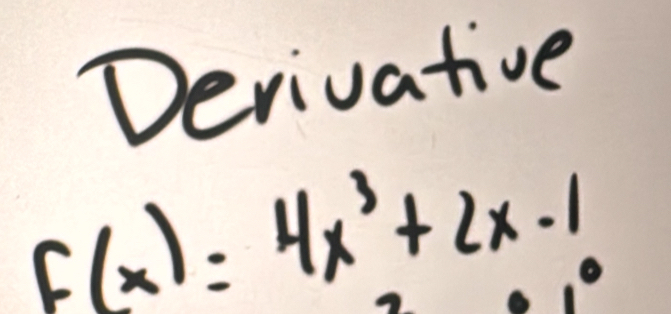 Derivative
F(x) = 4x³ + 2x - 1